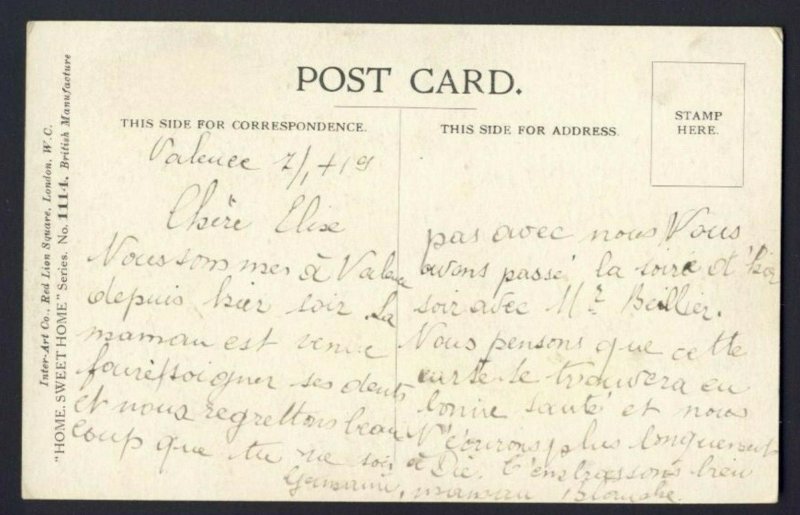 POST CARD.
THIS SIDE FOR CORRESPONDENCE.
THIS SIDE FOR ADDRESS.
STAMP
HERE.
Inter-Art Co., Red Lion Square, London, W.C.
"HOME, SWEET HOME" Series. No. 1114. British Manufacture
Valence
Chère Elise
Nous sommes à Valence
depuis hier soir. La
maman est venue
faire soigner ses dents
et nous regrettons beau
coup que tu ne sois
pas avec nous Vous
avons passé la soiré d'hier
soir avec Mr Beillier.
Nous pensons que cette
carte te trouvera en
bonne santé et nous
t'écrirons plus longuement
à Die. t'embrassons bien
Germaine, maman Blanche.